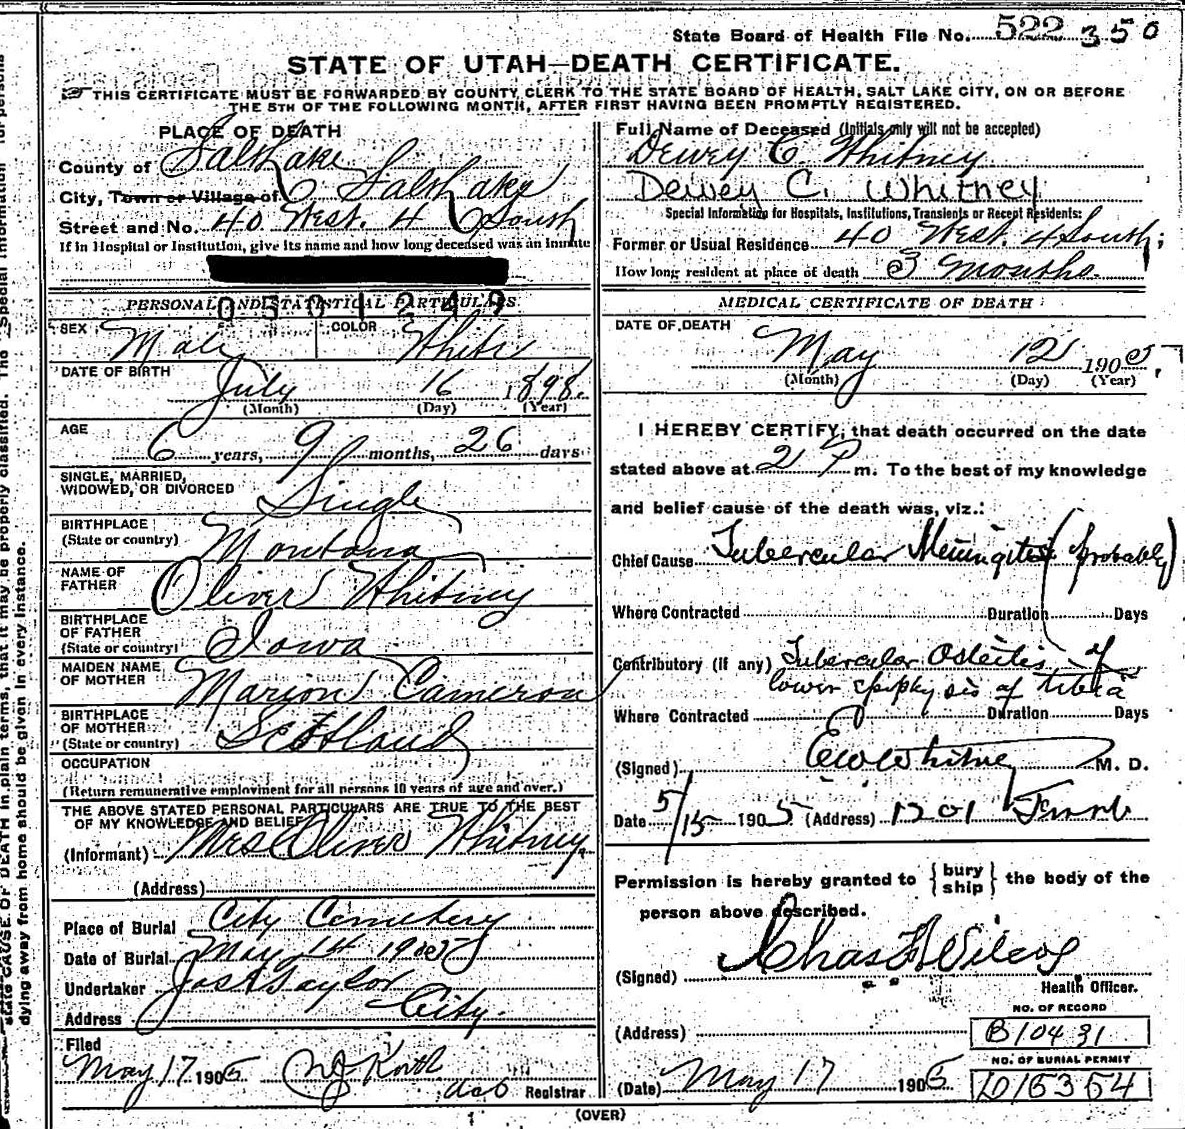 State Board of Health File No. 522 350
STATE OF UTAH—DEATH CERTIFICATE.
THIS CERTIFICATE MUST BE FORWARDED BY COUNTY CLERK TO THE STATE BOARD OF HEALTH, SALT LAKE CITY, ON OR BEFORE
THE 5TH OF THE FOLLOWING MONTH, AFTER FIRST HAVING BEEN PROMPTLY REGISTERED.
PLACE OF DEATH
County of Salt Lake
City, Town or Village of Salt Lake
Street and No. 40 West. 4 South
If in Hospital or Institution, give its name and how long deceased was an inmate
PERSONAL AND STATISTICAL PARTICULARS
0501249
SEX Male COLOR White
DATE OF BIRTH July 16 1898.
(Month) (Day) (Year)
AGE 6 years, 9 months, 26 days
SINGLE, MARRIED,
WIDOWED, OR DIVORCED Single
BIRTHPLACE
(State or country) Montana
NAME OF
FATHER Oliver Whitney
BIRTHPLACE
OF FATHER
(State or country) Iowa
MAIDEN NAME
OF MOTHER Marion Cameron
BIRTHPLACE
OF MOTHER
(State or country) Scotland
OCCUPATION
(Return remunerative employment for all persons 10 years of age and over.)
THE ABOVE STATED PERSONAL PARTICULARS ARE TRUE TO THE BEST
OF MY KNOWLEDGE AND BELIEF
(Informant) Mrs Oliver Whitney
(Address)
Place of Burial City Cemetery
Date of Burial May 14 1905
Undertaker Jos Taylor
Address City.
Filed
May 17 1905
Registrar
Full Name of Deceased (Initials only will not be accepted)
Dewey C. Whitney
Dewey C. Whitney
Special Information for Hospitals, Institutions, Transients or Recent Residents:
Former or Usual Residence 40 West. 4 South;
How long resident at place of death 3 months.
MEDICAL CERTIFICATE OF DEATH
DATE OF DEATH
May 12 1905,
(Month) (Day) (Year)
I HEREBY CERTIFY, that death occurred on the date
stated above at 2 P m. To the best of my knowledge
and belief cause of the death was, viz.:
Chief Cause Tubercular Meningitis (probably)
Where Contracted Duration Days
Contributory (if any) Tubercular Osteitis of
lower epiphysis of tibia
Where Contracted Duration Days
(Signed) E W Whitney M. D.
Date 5/15 1905 (Address) 1201
Permission is hereby granted to { bury ship } the body of the
person above described.
(Signed) Chas F. Wilcox
Health Officer.
NO. OF RECORD
(Address) B10431
NO. OF BURIAL PERMIT
(Date) May 17 1905 D15354
(OVER)
state CAUSE OF DEATH in plain terms, that it may be properly classified. The "Special Information" for persons
dying away from home should be given in every instance.